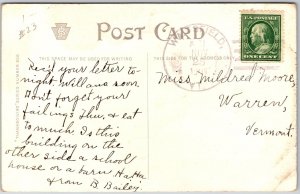 #35
POST CARD
THIS SPACE MAY BE USED FOR MESSAGE
THIS SIDE FOR THE ADDRESS
Rec'd your letter to-
night Will ans soon
Don't forget your
failings Shu, & eat
to much. Is this
building on the
other side a school
house or a barn Ha Ha
from B Bailey.
U.S. POSTAGE
ONE CENT
Miss Mildred Moore,
Warren,
Vermont.